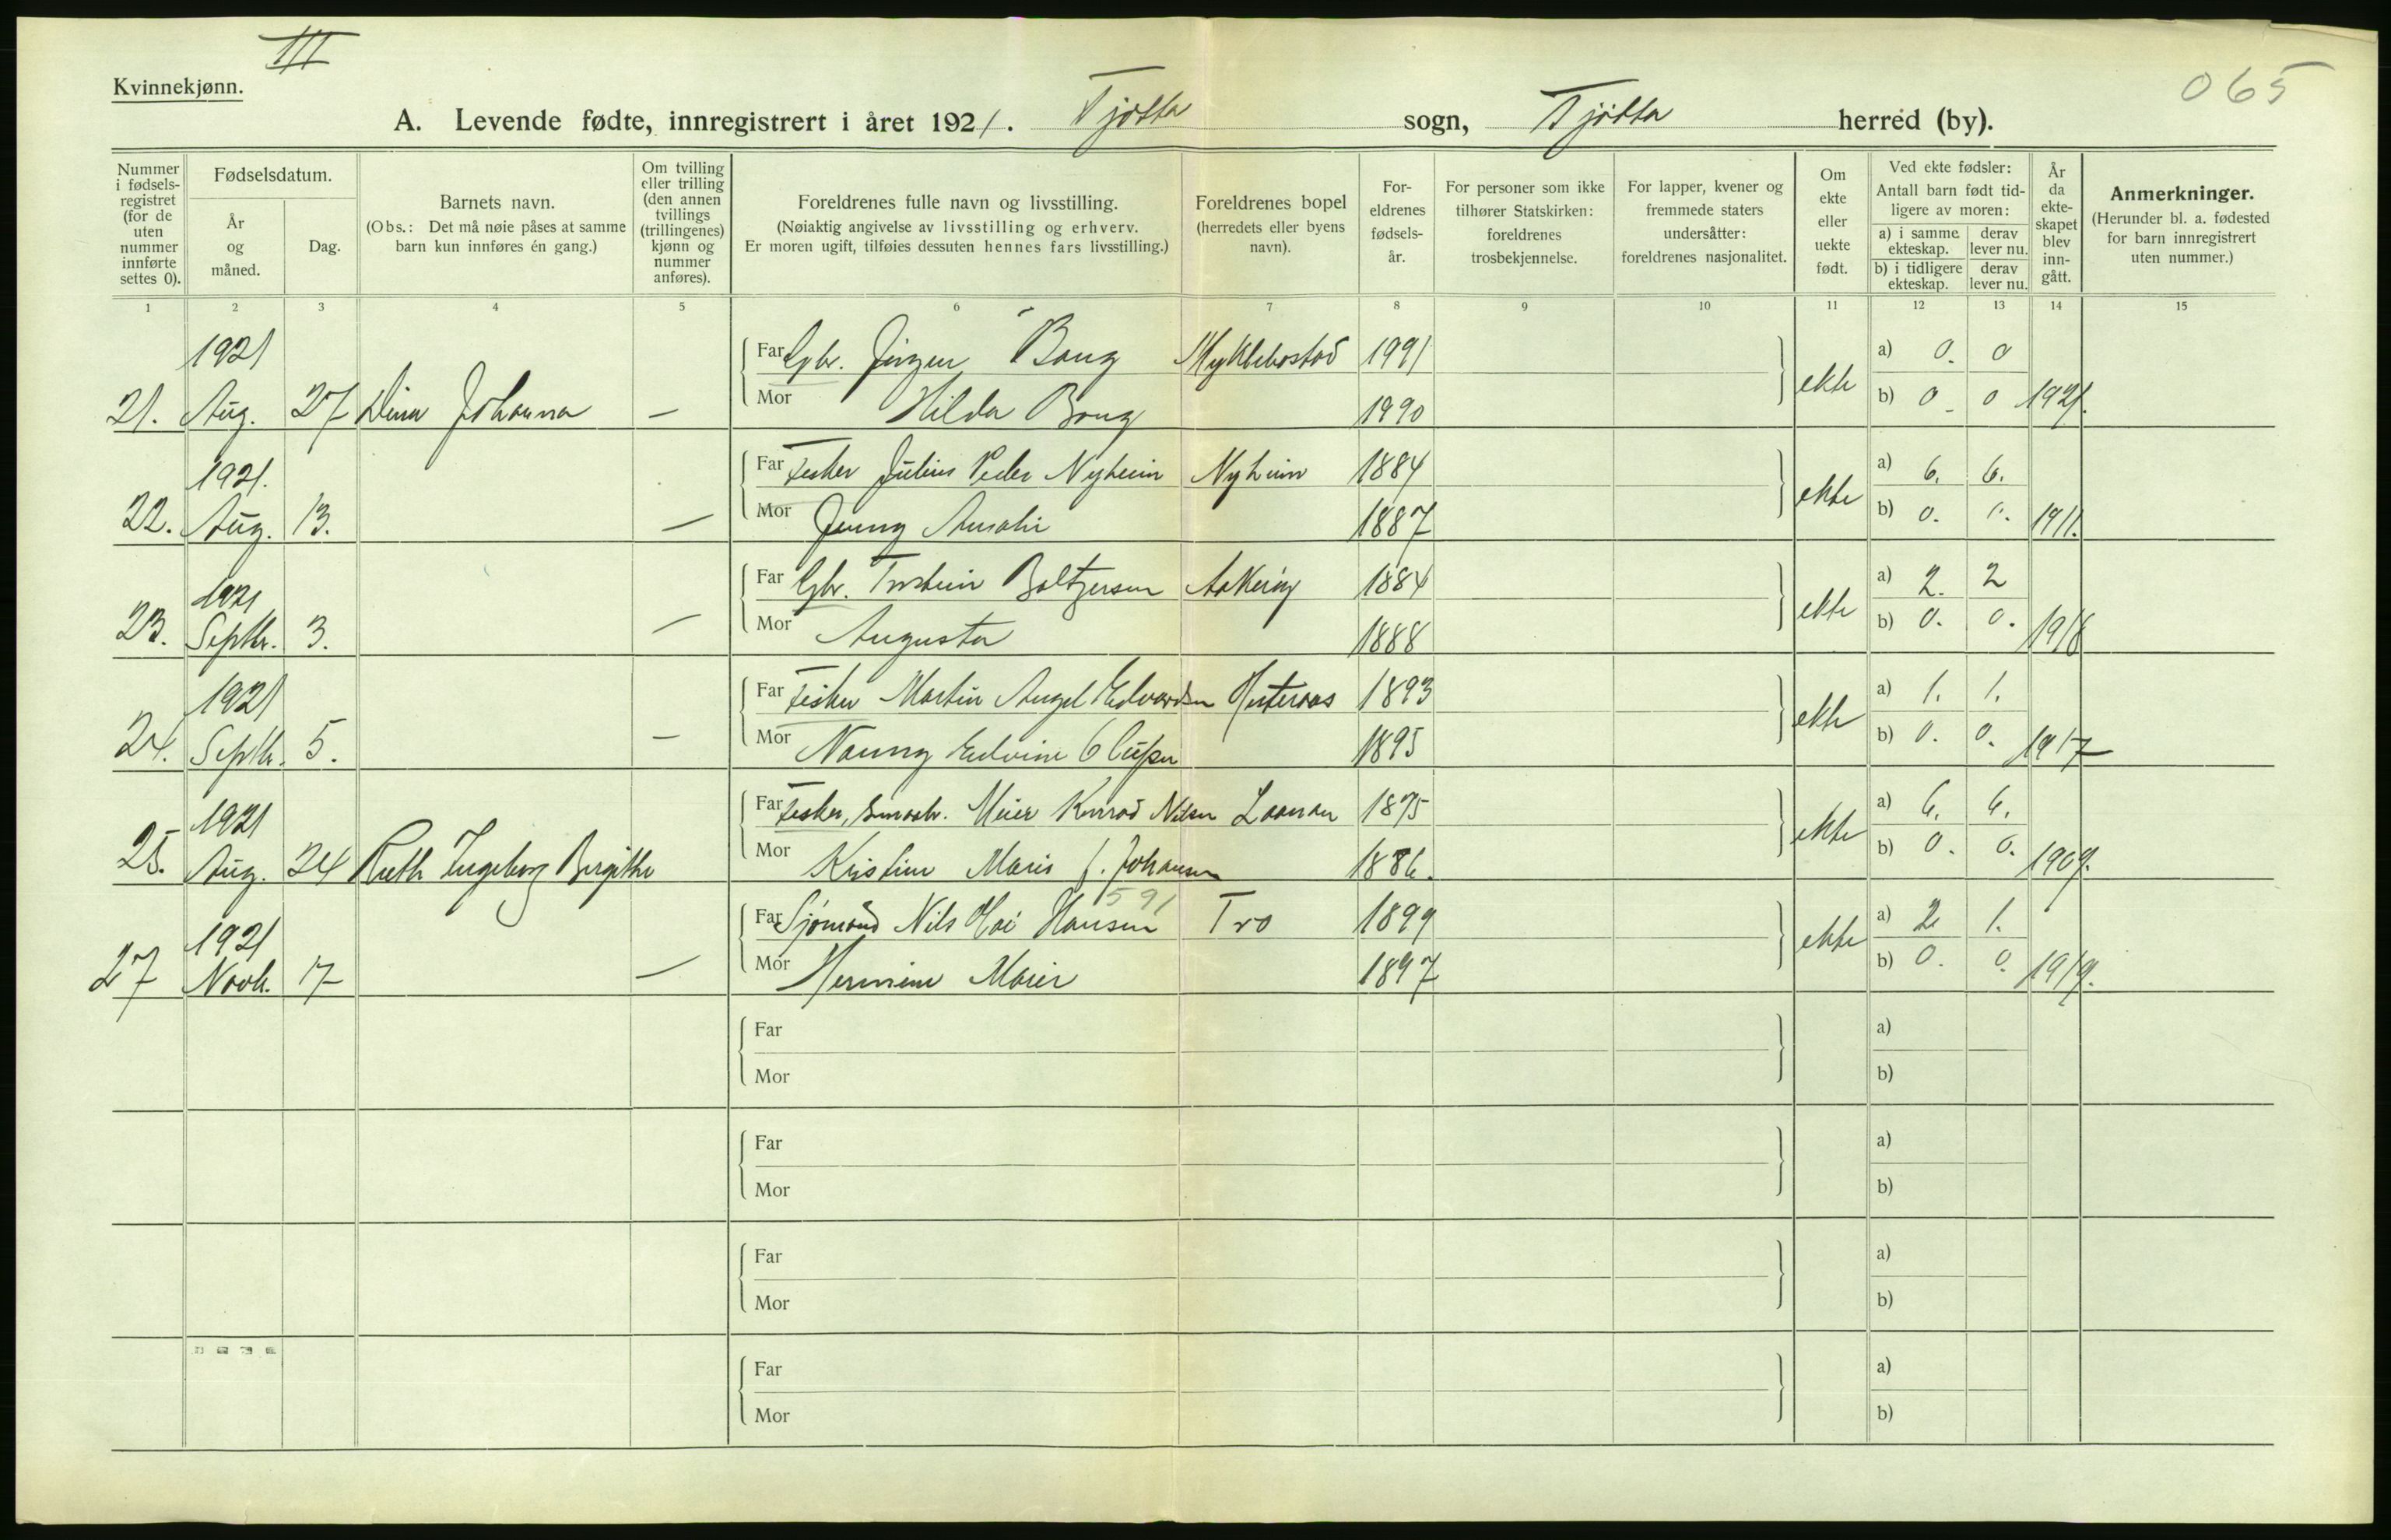 III
Kvinnekjønn.
065
A. Levende fødte, innregistrert i året 1921. Tjøtta sogn, Tjøtta herred (by).
Nummer i fødsels-registret (for de uten nummer innførte settes 0).
Fødselsdatum.
År og måned.
Dag.
Barnets navn.
(Obs.: Det må nøie påses at samme barn kun innføres én gang.)
Om tvilling eller trilling (den annen tvillings (trillingenes) kjønn og nummer anføres).
Foreldrenes fulle navn og livsstilling.
(Nøiaktig angivelse av livsstilling og erhverv.
Er moren ugift, tilføies dessuten hennes fars livsstilling.)
Foreldrenes bopel
(herredets eller byens navn).
For-eldrenes fødsels-år.
For personer som ikke tilhører Statskirken: foreldrenes trosbekjennelse.
For lapper, kvener og fremmede staters undersåtter: foreldrenes nasjonalitet.
Om ekte eller uekte født.
Ved ekte fødsler:
Antall barn født tid-ligere av moren:
a) i samme ekteskap. derav lever nu.
b) i tidligere ekteskap. derav lever nu.
År da ekte-skapet blev inn-gått.
Anmerkninger.
(Herunder bl. a. fødested for barn innregistrert uten nummer.)
1 2 3 4 5 6 7 8 9 10 11 12 13 14 15
1921
Far Gbr. Jørgen Bang 1991 a) 0. 0
21. Aug. 27 Dina Johanna — Mor Hilda Bang 1990 ekte b) 0 0 1921.
1921.
Far Fisker Julius Peder Nyheim Nyheim 1884 a) 6. 6.
22. Aug. 13. — Mor Jenny 1887 ekte b) 0. 0. 1911.
1921
Far Gbr. Torstein Baltzersen 1884 a) 2. 2
23. Septbr. 3. — Mor Augusta 1888 ekte b) 0. 0. 1918
1921
Far Fisker Martin Angel Edvardsen 1893 a) 1. 1.
24. Septbr. 5. — Mor Nanny 1895 ekte b) 0. 0. 1917
1921
Far Fisker, Meier Konrad Nilsen 1875 a) 6. 6.
25. Aug. 24 Ruth Ingeborg Birgithe Mor Kristine Marie f. Johansen 1886. ekte b) 0. 0. 1909.
591
1921
Far Sjömand Nils Hansen Tro 1899 a) 2 1.
27 Novb. 17 — Mor 1897 ekte b) 0. 0. 1919.
Far a)
Mor b)
Far a)
Mor b)
Far a)
Mor b)
Far a)
Mor b)